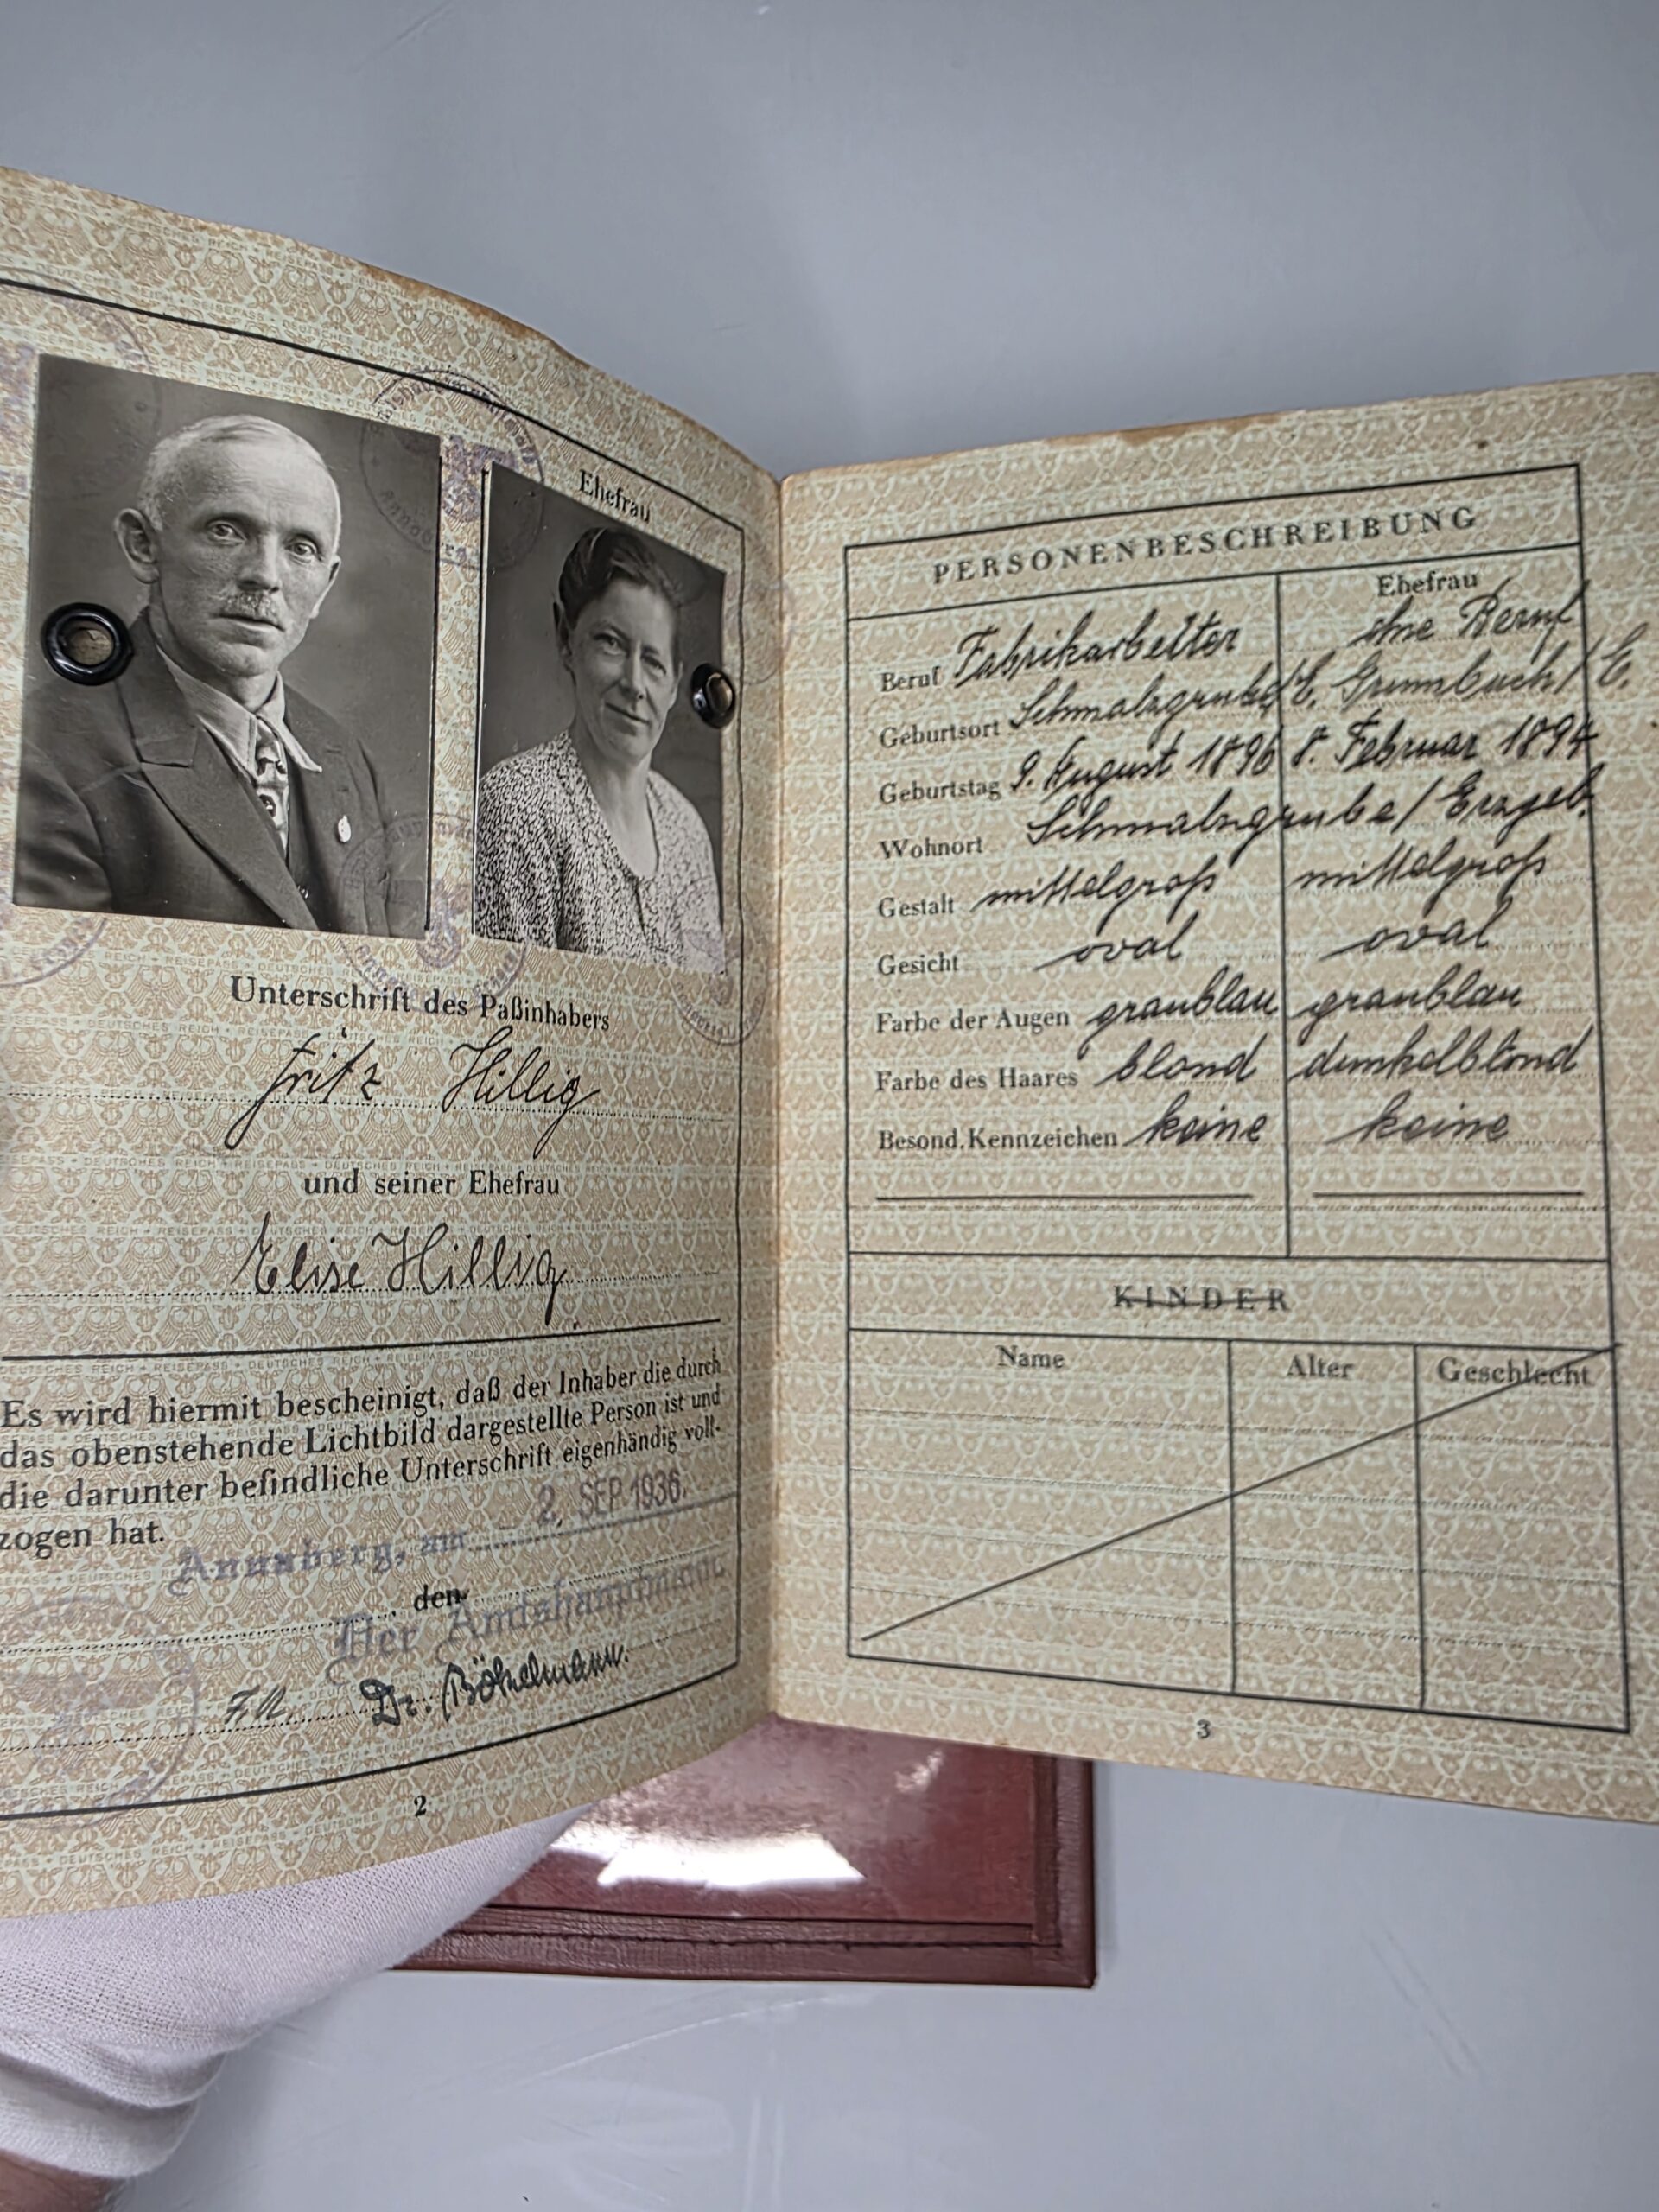 Ehefrau
Unterschrift des Paßinhabers
Fritz Hillig
und seiner Ehefrau
Elise Hillig
Es wird hiermit bescheinigt, daß der Inhaber die durch
das obenstehende Lichtbild dargestellte Person ist und
die darunter befindliche Unterschrift eigenhändig voll-
zogen hat.
Annaberg, am 2. SEP. 1936.
, den
Der Amtshauptmann
Dr. Bökelmann.
2
PERSONENBESCHREIBUNG
Ehefrau
Beruf Fabrikarbeiter ohne Beruf
Geburtsort Schmalzgrube/E. Grumbach/E.
Geburtstag 9. August 1896 8. Februar 1894
Wohnort Schmalzgrube/Erzgeb.
Gestalt mittelgroß mittelgroß
Gesicht oval oval
Farbe der Augen graublau graublau
Farbe des Haares blond dunkelblond
Besond. Kennzeichen keine keine
KINDER
Name Alter Geschlecht
3